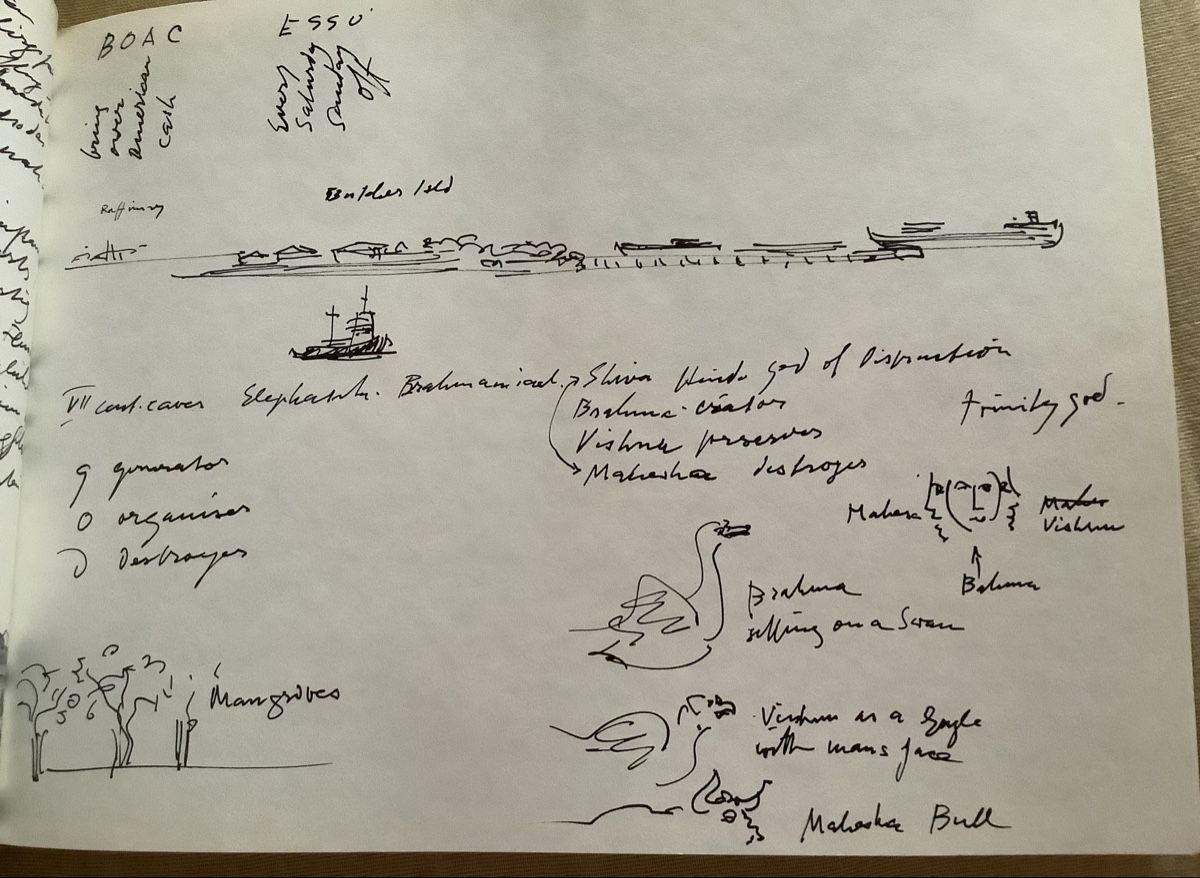 BOAC
bring
over
American
cash
ESSO
Every
Saturday
Sunday
off
Butcher Isld
VII cent. caves Elephanta. Brahmanical. Shiva Hindu god of Distruction
Brahma creator
Vishnu preserves
Mahesha destroyes
trinity god.
g generator
o organiser
D Destroyer
Mahesa
Vishnu
Brahma
Brahma
sitting on a Swan
Mangroves
Vishnu as a Eagle
with mans face
Mahesha Bull